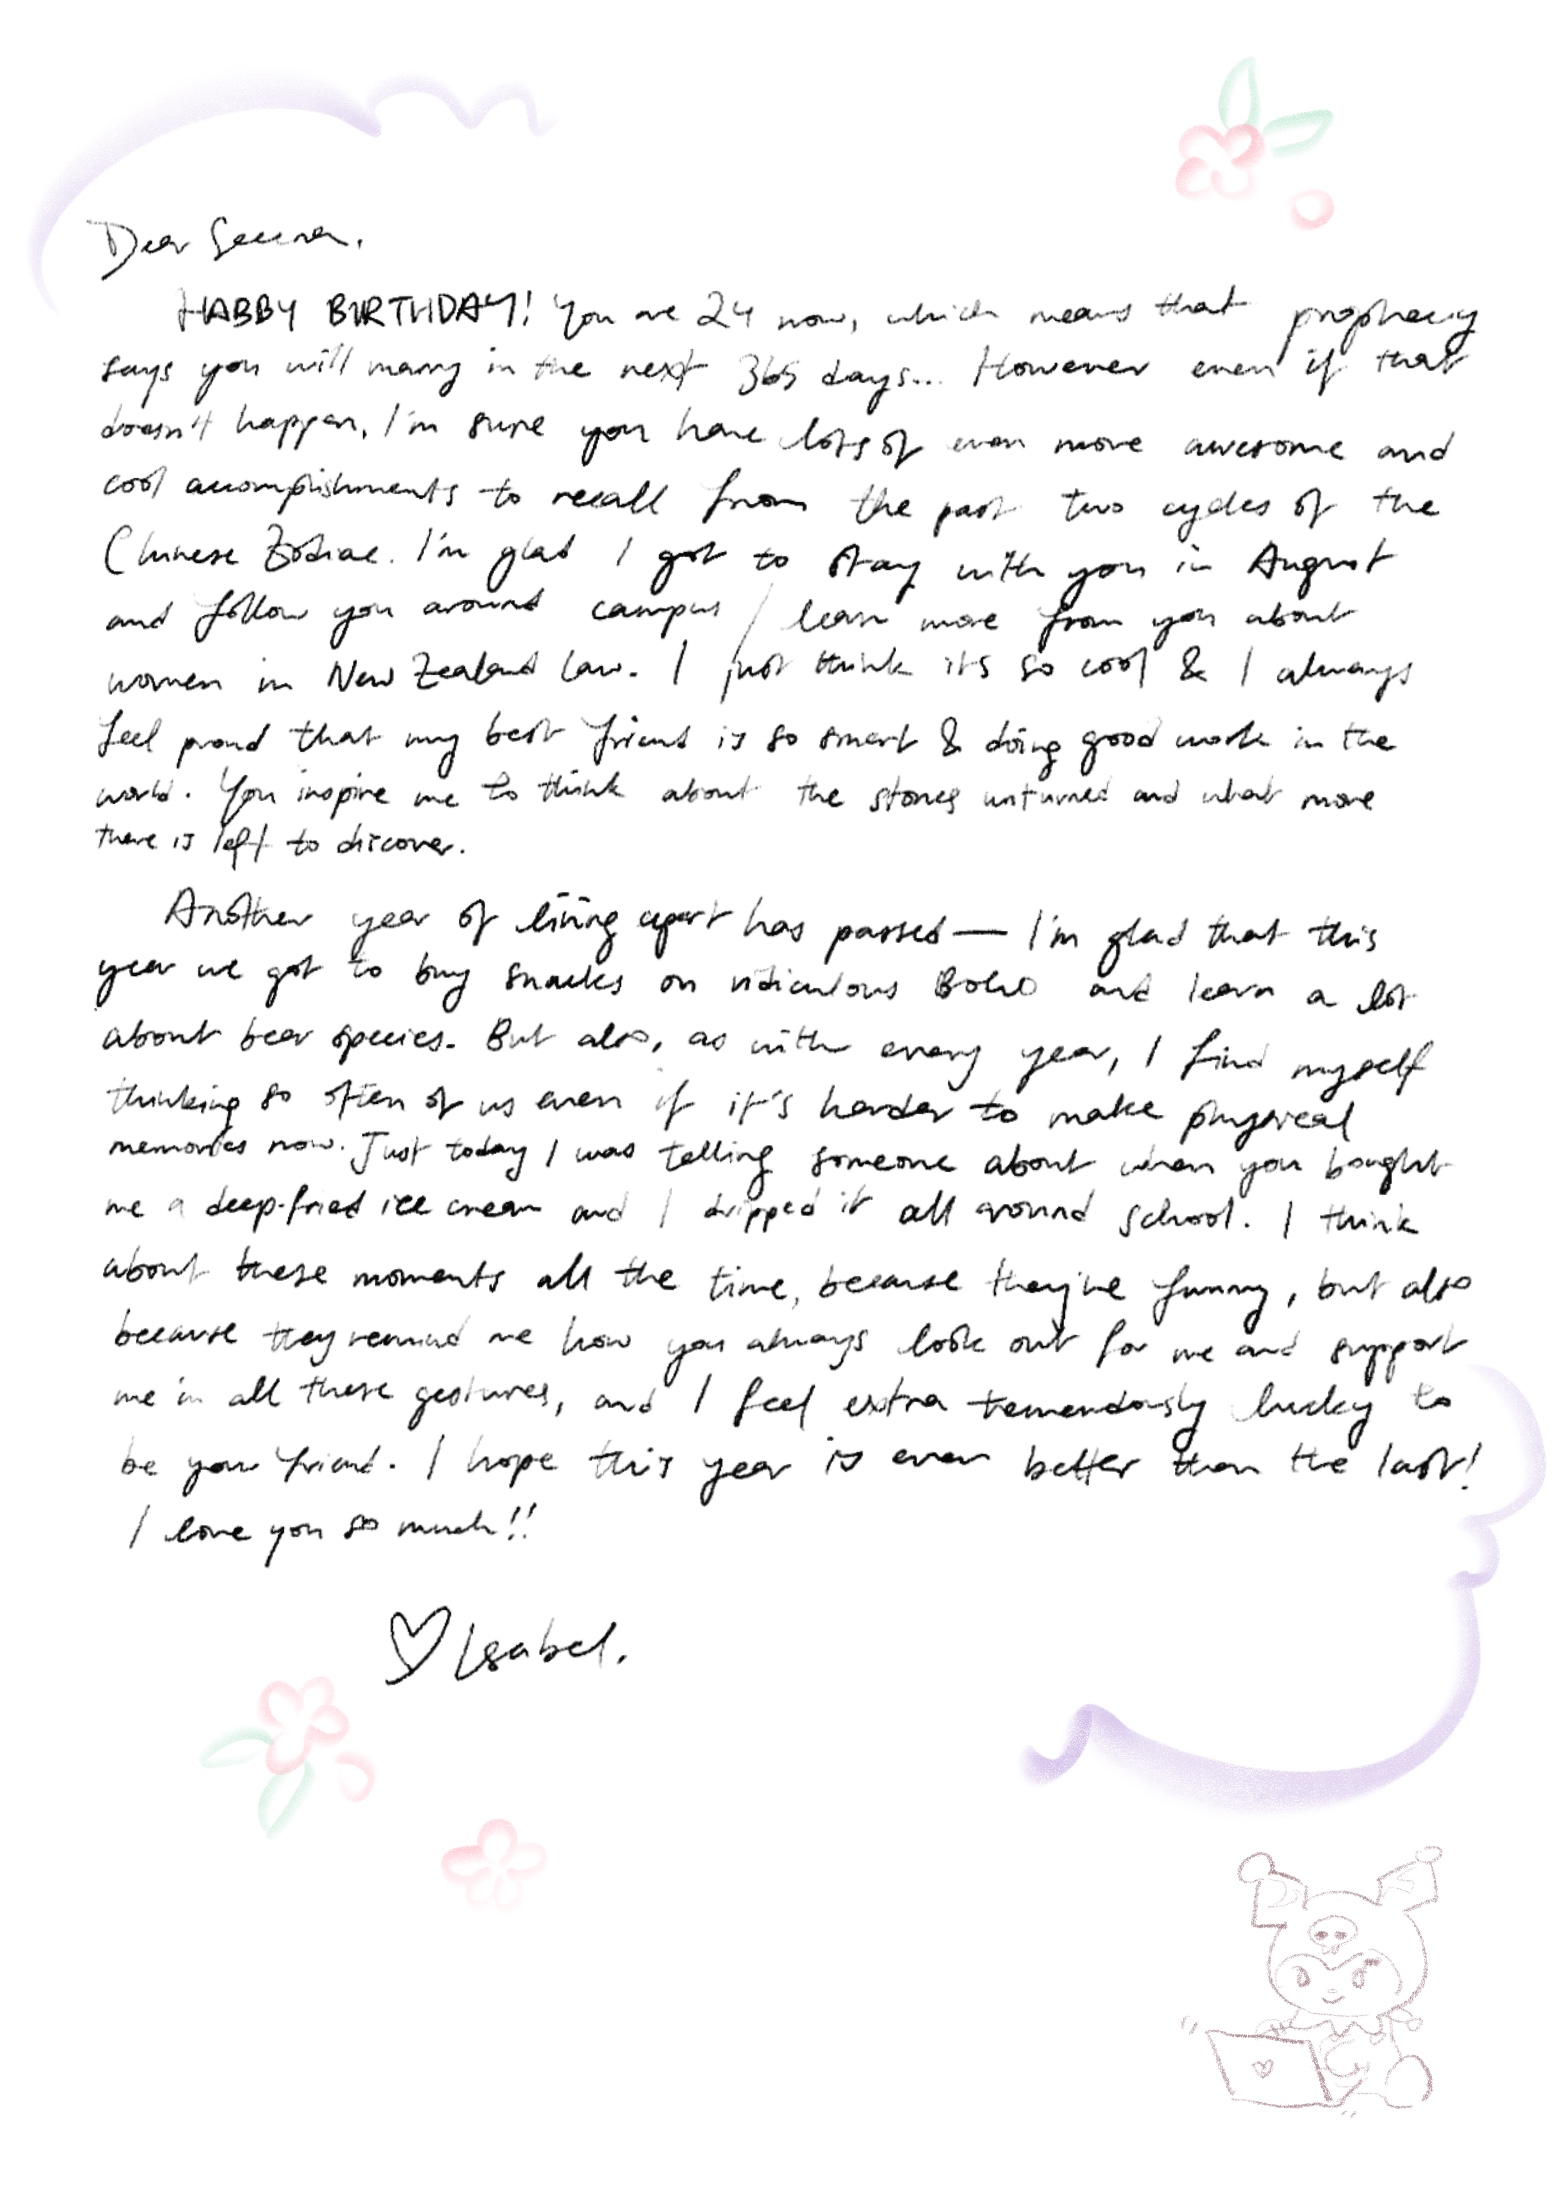 Dear Seeena,
HABBY BIRTHDAY! You are 24 now, which means that prophecy
says you will marry in the next 365 days... However even if that
doesn't happen, I'm sure you have lots of even more awesome and
cool accomplishments to recall from the past two cycles of the
Chinese Zodiac. I'm glad I got to stay with you in August
and follow you around campus / learn more from you about
women in New Zealand law. I just think it's so cool & I always
feel proud that my best friend is so smart & doing good work in the
world. You inspire me to think about the stones unturned and what more
there is left to discover.
Another year of living apart has passed — I'm glad that this
year we got to buy snacks on ridiculous BOGO and learn a lot
about bear species. But also, as with every year, I find myself
thinking so often of us even if it's harder to make physical
memories now. Just today I was telling someone about when you bought
me a deep-fried ice cream and I dripped it all around school. I think
about these moments all the time, because they're funny, but also
because they remind me how you always look out for me and support
me in all these gestures, and I feel extra tremendously lucky to
be your friend. I hope this year is even better than the last!
I love you so much!!
♡ Isabel.